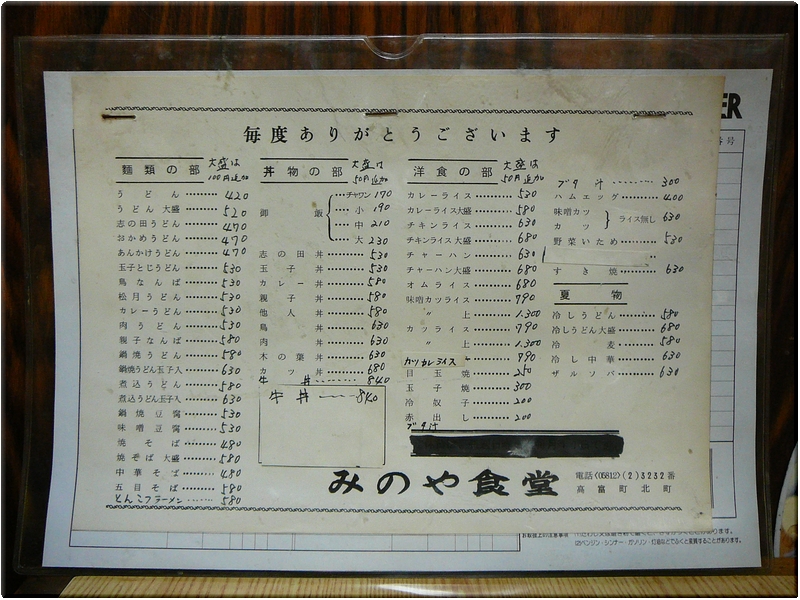 毎度ありがとうございます
麺類の部 大盛は100円追加
うどん 420
うどん大盛 520
志の田うどん 470
おかめうどん 470
あんかけうどん 470
玉子とじうどん 530
鳥なんば 530
松月うどん 530
カレーうどん 530
肉うどん 530
親子なんば 580
鍋焼うどん 580
鍋焼うどん玉子入 630
煮込うどん 580
煮込うどん玉子入 630
鍋焼豆腐 530
味噌豆腐 530
焼そば 480
焼そば大盛 580
中華そば 480
五目そば 580
とんこつラーメン 580
丼物の部 大盛は50円追加
御飯 チャワン 170
小 190
中 210
大 230
志の田丼 530
玉子丼 530
カレー丼 580
親子丼 580
他人丼 580
鳥丼 630
肉丼 630
木の葉丼 630
カツ丼 680
牛丼 840
牛丼 840
洋食の部 大盛は50円追加
カレーライス 530
カレーライス大盛 580
チキンライス 630
チキンライス大盛 680
チャーハン 630
チャーハン大盛 680
オムライス 680
味噌カツライス 790
〃 上 1.300
カツライス 790
〃 上 1.300
カツカレライス 790
目玉焼 250
玉子焼 300
冷奴子 200
赤出し 200
ブタ汁
ブタ汁 300
ハムエッグ 400
味噌カツ
カツ } ライス無し 630
野菜いため 530
すき焼 630
夏物
冷しうどん 580
冷しうどん大盛 680
冷麦 580
冷し中華 630
ザルソバ 630
みのや食堂
電話<05812>(2)3232番
高富町北町
ER
番号
お取扱上の注意事項
(2)ベンジン・シンナー・ガソリン・灯油などでふくと変質することがあります。